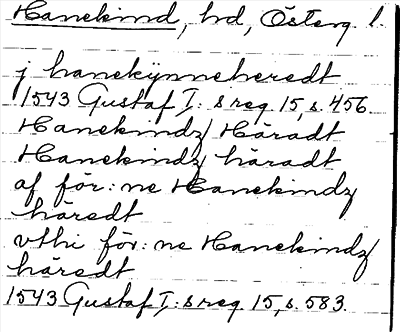 Hanekind, hd, Österg. l.
j hanekÿnneheredt
1543 Gustaf I: s reg. 15, s. 456.
Hanekindz Häradt
Hanekindz häradt
af för: ne Hanekindz
häredt
vthi för: ne Hanekindz
häredt
1543 Gustaf I,: s reg. 15, s. 583.